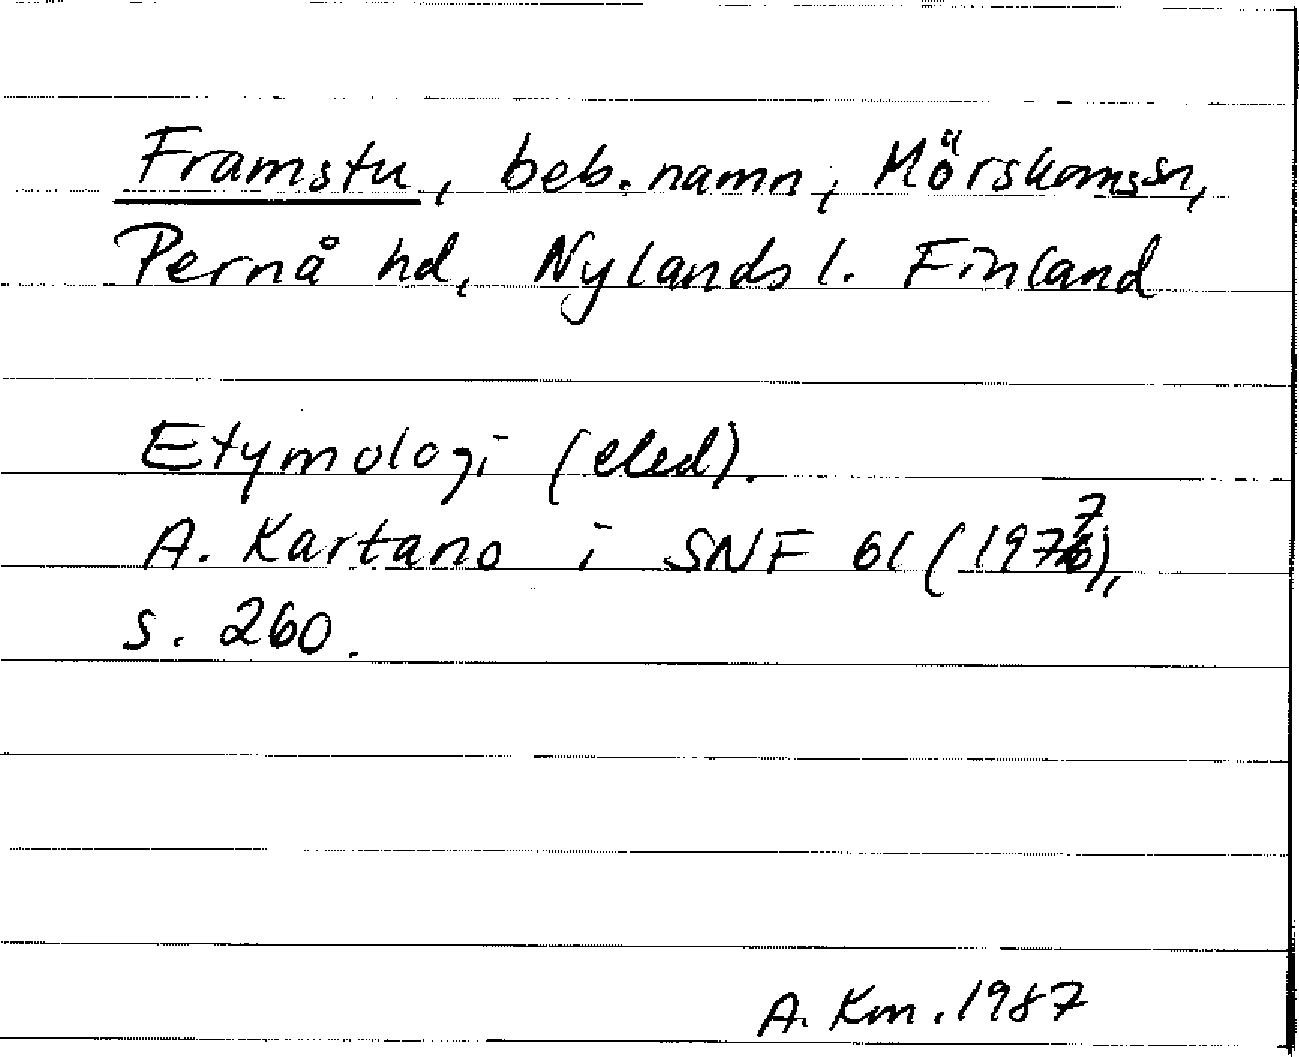 Framstu, beb.namn, Mörskoms sn,
Pernå hd, Nylands l. Finland
Etymologi (eled).
A. Kartano i SNF 61 (1977),
s. 260.
A. Km. 1987